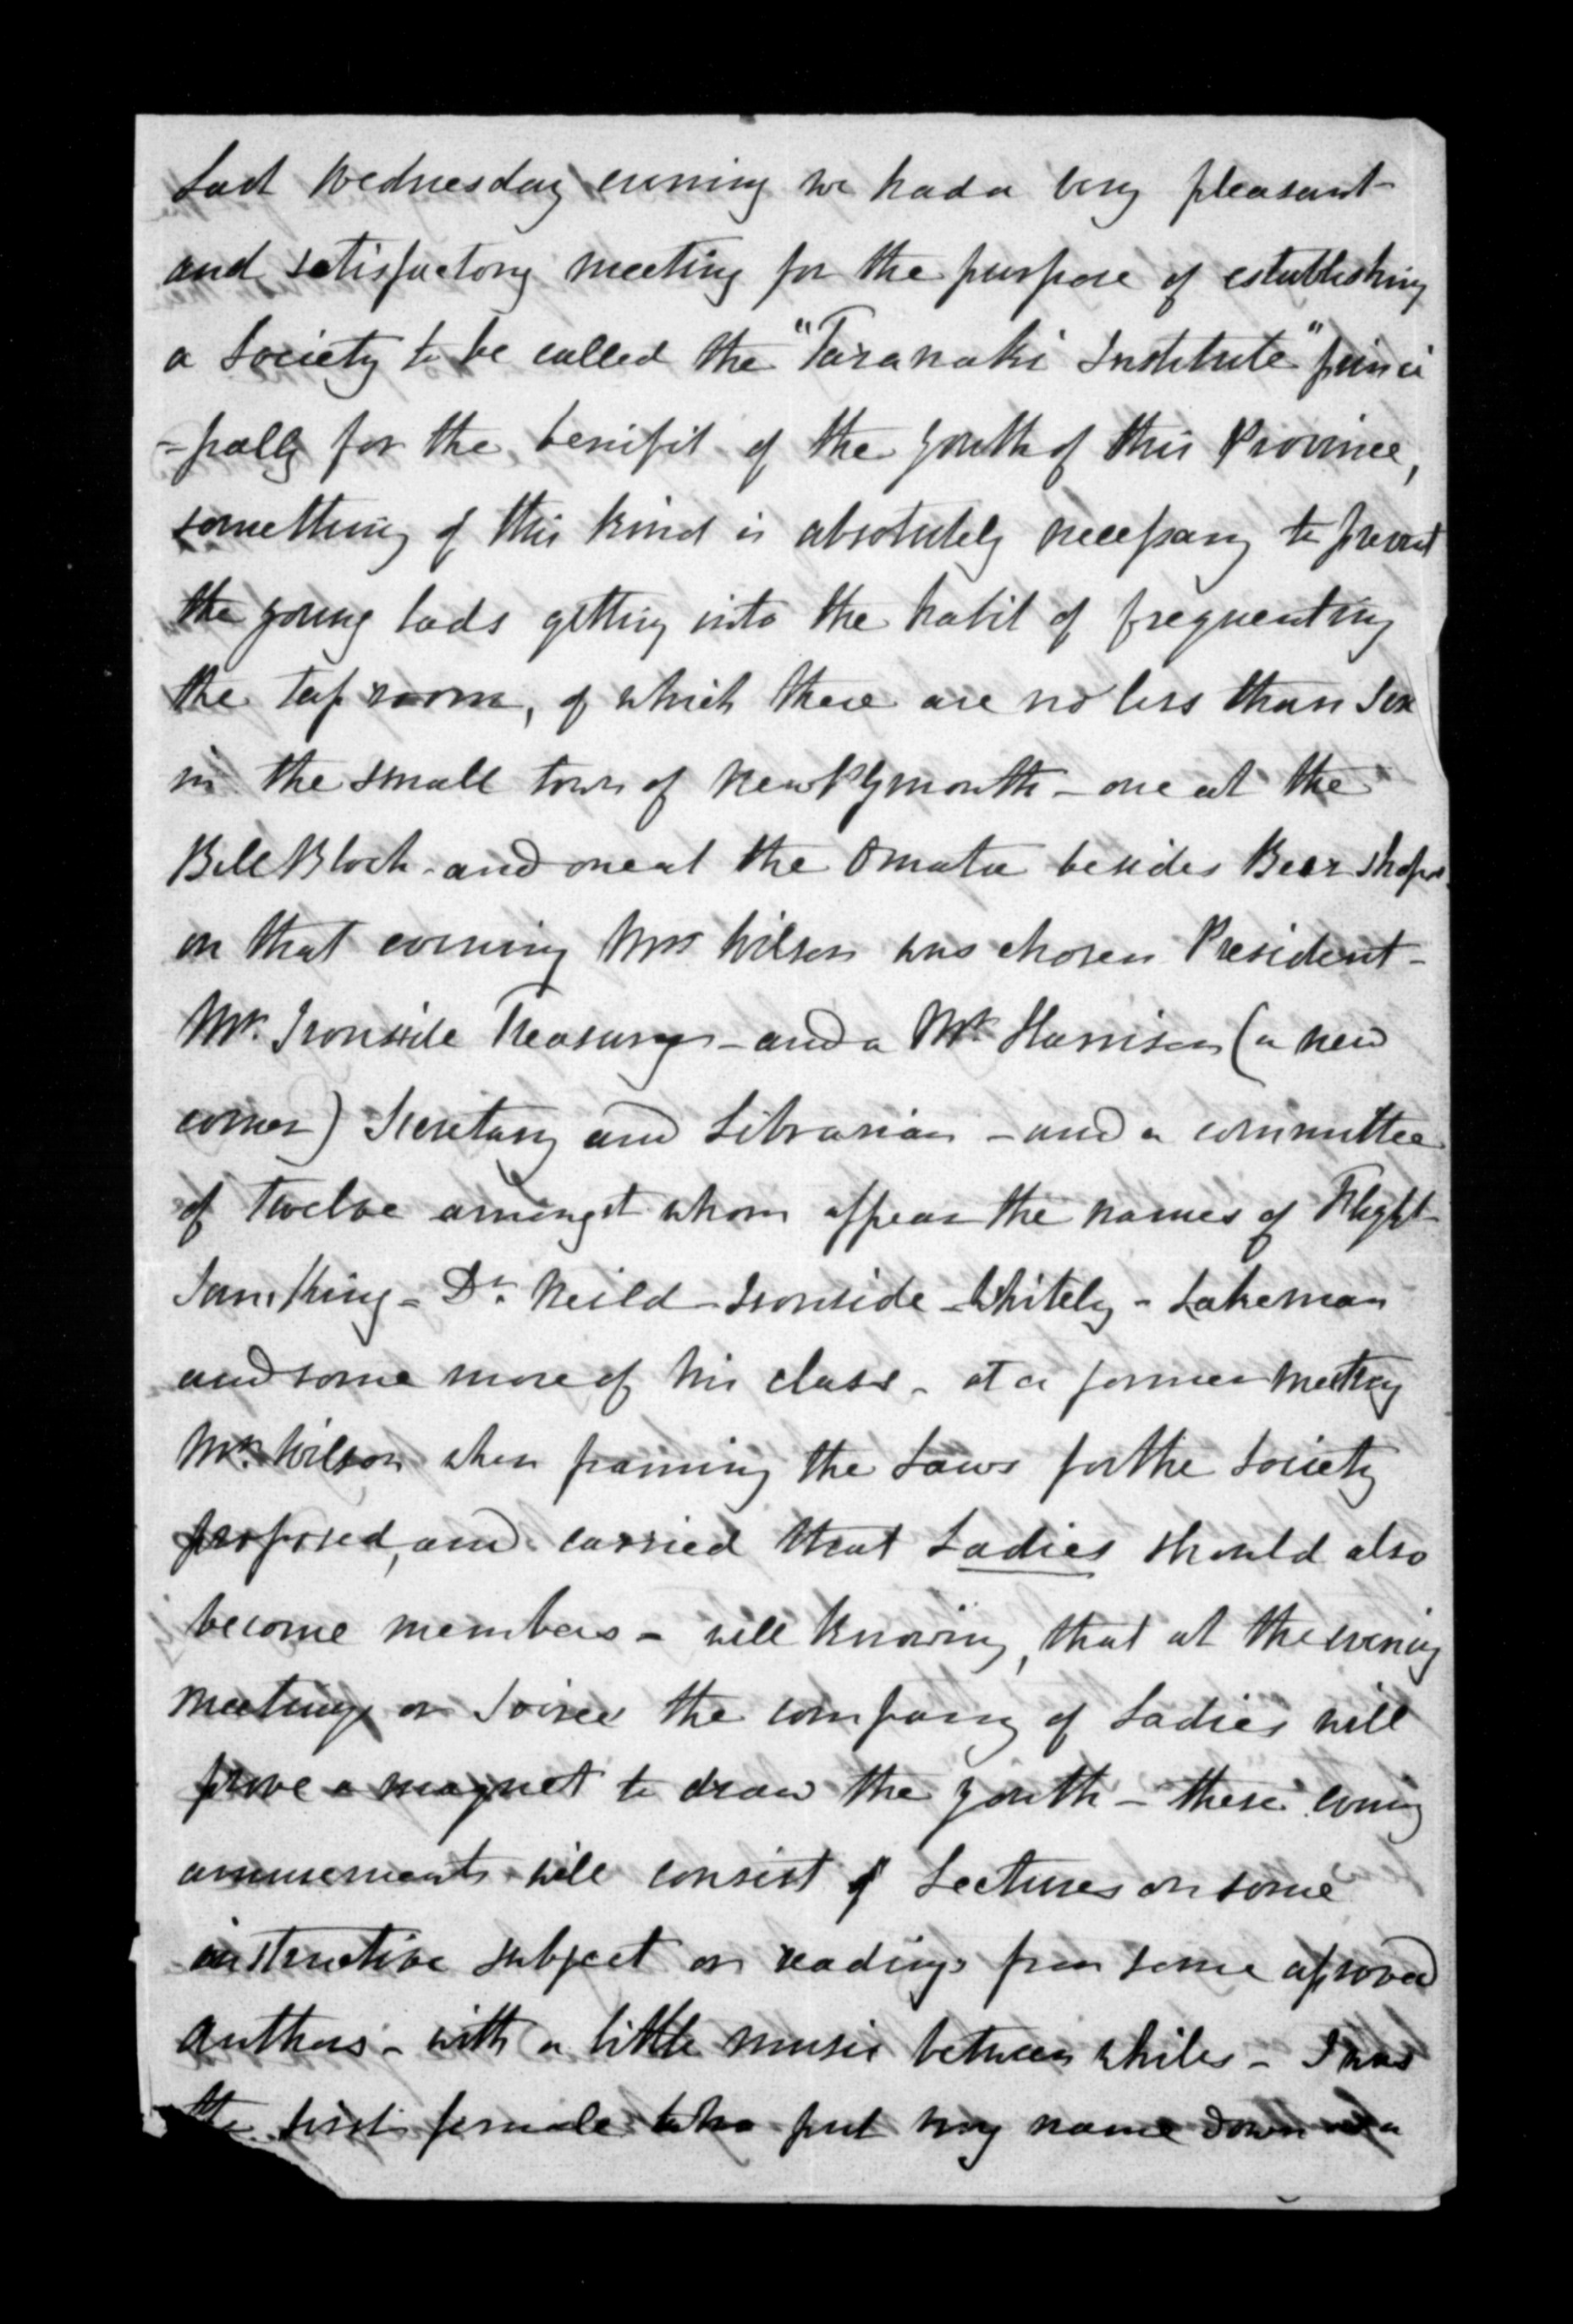 Last Wednesday evening we had a very pleasant
and satisfactory meeting for the purpose of establishing
a Society to be called the "Taranaki Institute" princi
-pally for the benifit of the youth of this Province,
something of this kind is absolutely necessary to prevent
the young lads getting into the habit of frequenting
the tap room, of which there are no less than Six
in the small town of New Plymouth - one at the
Bell Block - and one at the Omata besides Beer shops.
on that evening Mr Wilson was chosen President -
Mr. Ironside Treasurer - and a Mr. Harrison (a new
comer) Secretary and Librarian - and a committee
of twelve amongst whom appear the names of Flight
Saml King - Dr. Neild - Ironside - Whitely - Lakeman
and some more of his class - at a former meeting
Mr. Wilson when framing the Laws for the Society
proposed, and carried that Ladies should also
become members - well knowing, that at the evening
meetings or Soirees the company of Ladies will
prove a magnet to draw the youth - these evening
amusements will consist of Lectures on some
instructive subject or readings from some aproved
authors - with a little music between whiles - I was
the first female who put my name down as a